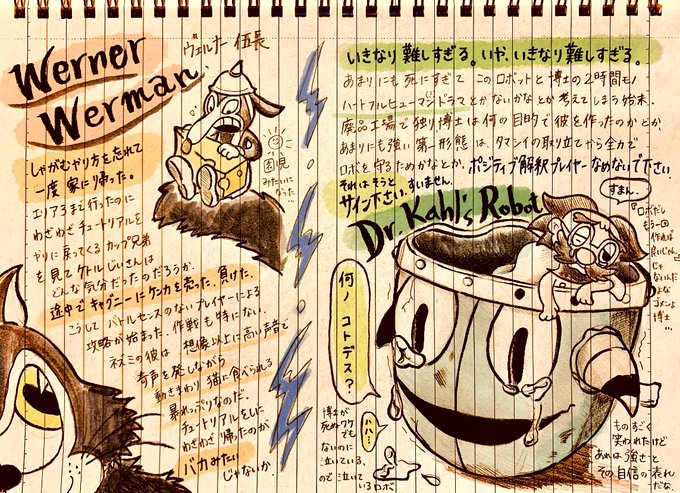 Werner
Werman
ヴェルナー伍長
しゃがむやり方を忘れて
一度家に帰った。
エリア3まで行ったのに
わざわざチュートリアルを
やりに戻ってくるカップ兄弟
を見てケトルじいさんは
どんな気分だったのだろうか。
途中でキャグニーにケンカを売った。負けた。
こうしてバトルセンスのないプレイヤーによる
攻略が始まった。作戦も特にない。
ネズミの彼は 想像以上に高い声音で
奇声を発しながら
動きまわり猫に食べられる
暴れっぷりなのだ。
チュートリアルをしに
わざわざ帰ったのが
バカみたい
じゃないか。
みたいに
なった…
いきなり難しすぎる。いや、いきなり難しすぎる。
あまりにも死にすぎてこのロボットと博士の2時間モノ
ハートフルヒューマンドラマとかないかなとか考えてしまう始末。
廃品工場で独り博士は何の目的で彼を作ったのかとか、
あまりにも強い第一形態は、タマシイの取り立てから全力で
ロボを守るためかなとか。ポジティブ解釈プレイヤーなめないで下さい。
それはそうと
サイン下さい。すいません。
Dr. Kahl's Robot
すまん。
『ロボだし
もう一回
作れば
良いじゃん』
じゃ
ないんだ
よな
ゴメンよ
博士…
何ノコトデス？
ハハ…
博士が
死ぬワケ
でも
ないのに
泣いている
ので泣いて
いるロボ
ものすごく
笑われたけど
あれは強さと
その自信の表れ
だな。